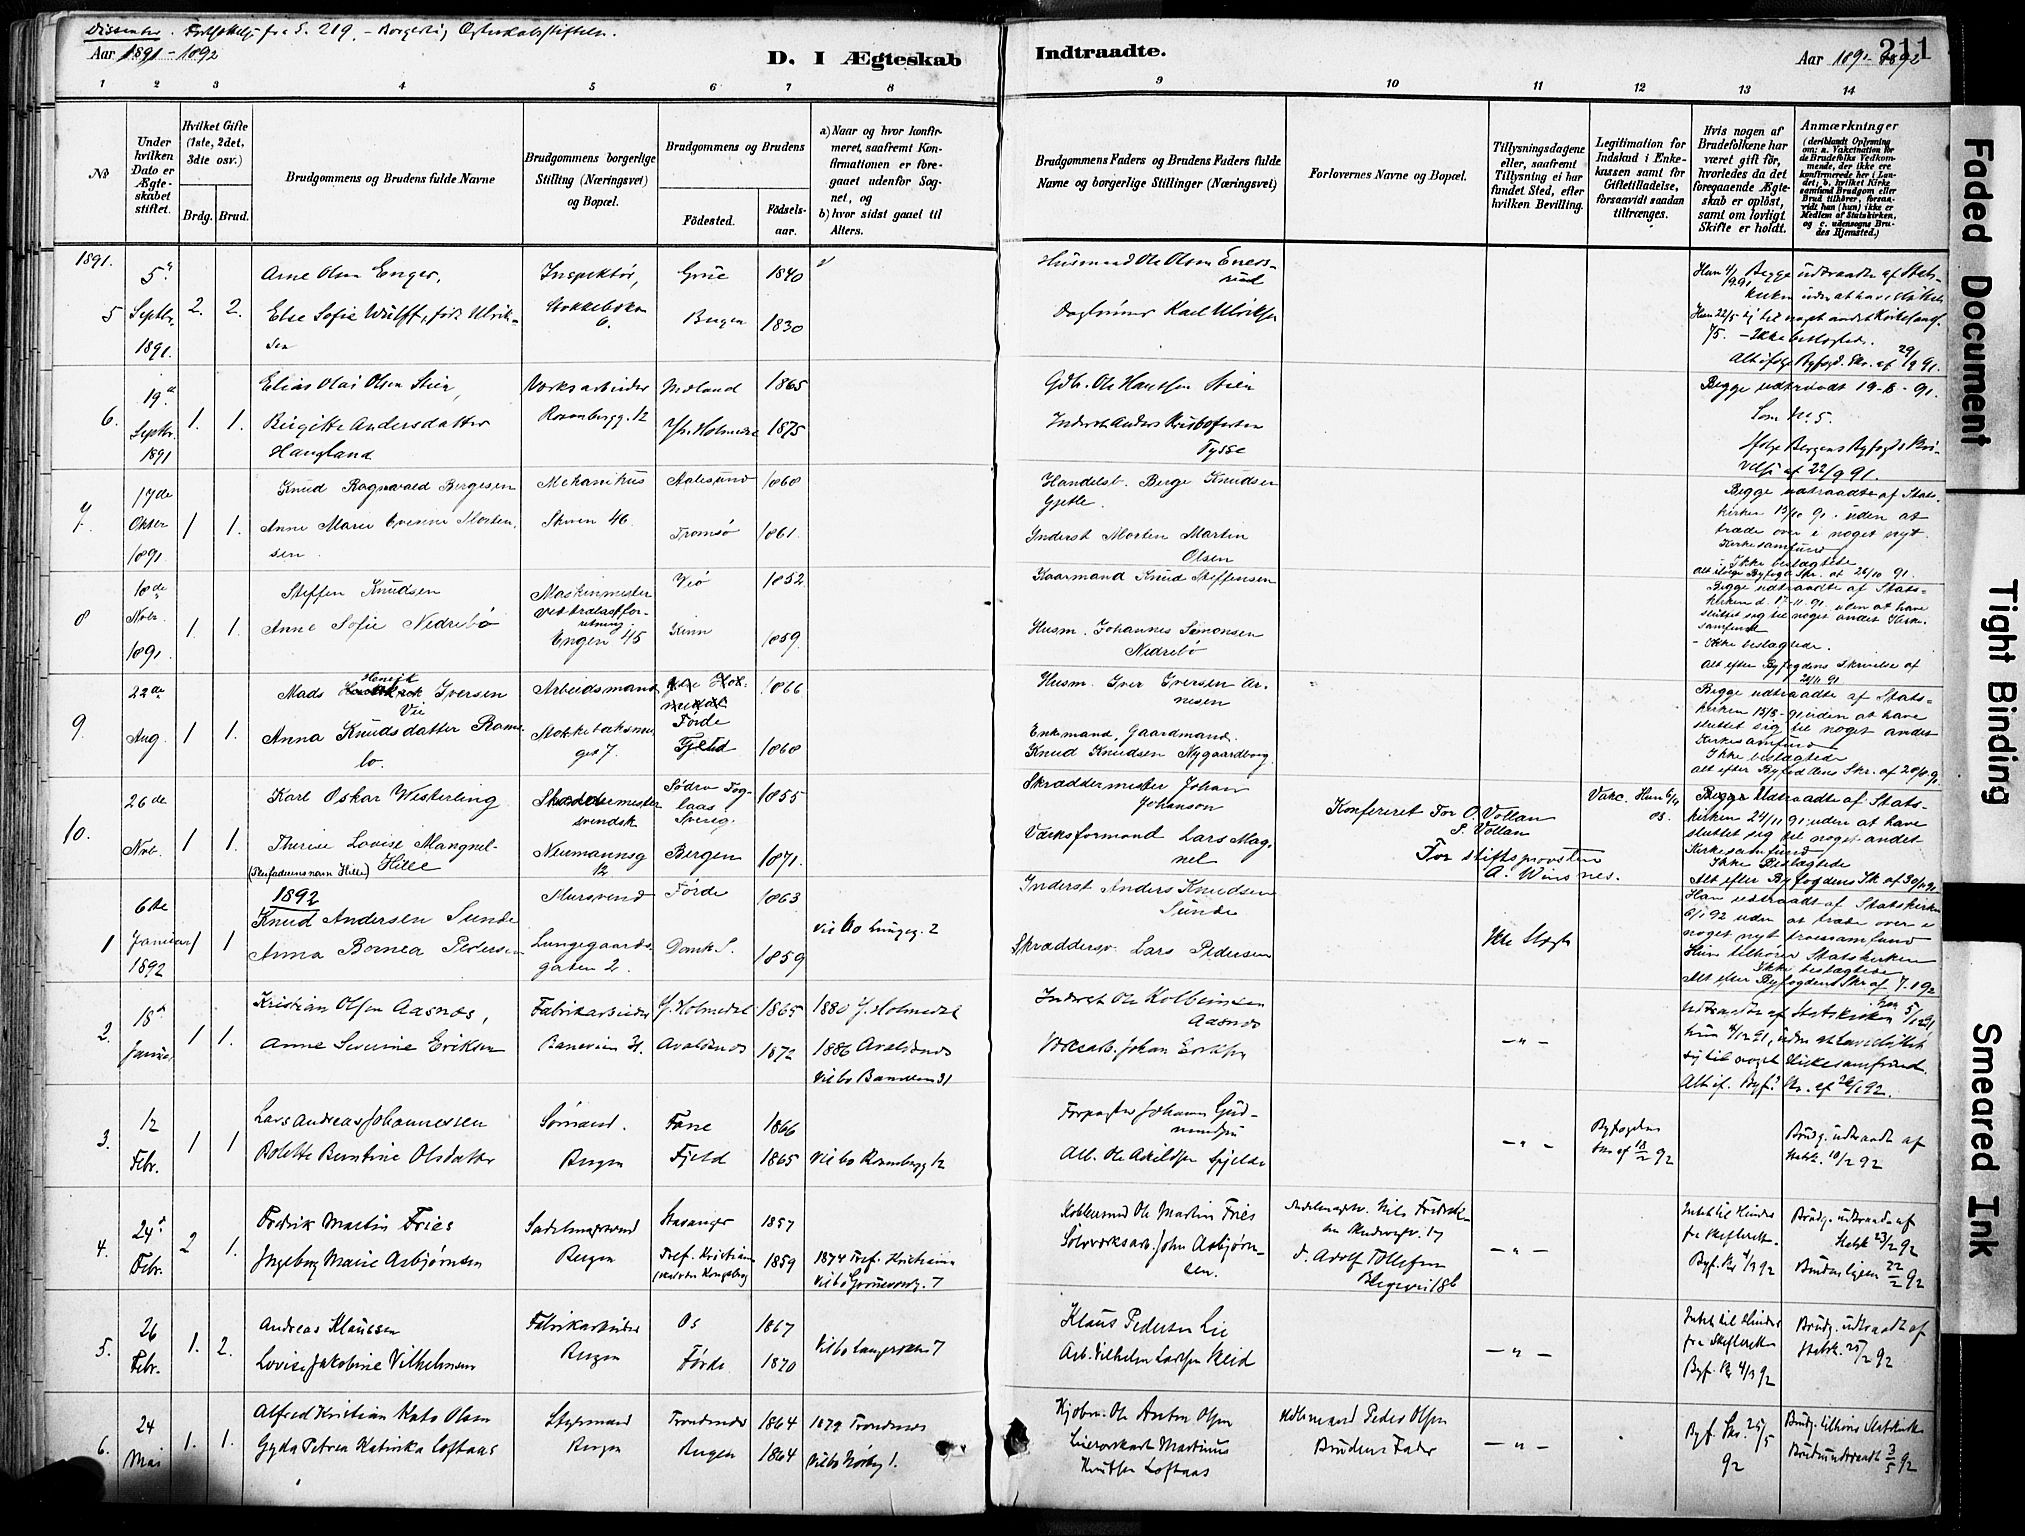 Dissenter. Fortsættelse fra S. 219. – Borgerlig Ægteskabsstiftelse.
Aar 1891 - 1892
D. I Ægteskab Indtraadte.
Aar 1891 - 1892
211
1 2 3 3 4 5 6 7 8 9 10 11 12 13 14
No
Under hvilken Dato er Ægteskabet stiftet.
Hvilket Gifte (1ste, 2det, 3die osv.)
Brdg. Brud.
Brudgommens og Brudens fulde Navne
Brudgommens borgerlige Stilling (Næringsvei) og Bopæl.
Brudgommens og Brudens
Fødested.
Fødselsaar.
a) Naar og hvor konfirmeret, saafremt Konfirmationen er foregaaet udenfor Sognet, og
b) hvor sidst gaaet til Alters.
Brudgommens Faders og Brudens Faders fulde Navne og borgerlige Stillinger (Næringsvei)
Forlovernes Navne og Bopæl.
Tillysningsdagene eller, saafremt Tillysning ei har fundet Sted, efter hvilken Bevilling.
Legitimation for Indskud i Enkekassen samt for Giftetilladelse, forsaavidt saadan tiltrænges.
Hvis nogen af Brudefolkene har været gift før, hvorledes da det foregaaende Ægteskab er opløst, samt om lovligt Skifte er holdt.
Anmærkninger (deriblandt Oplysning om: a. Vakcination for de Brudefolks Vedkommende, der ikke ere konfirmerede her i Landet; b. hvilket Kirkesamfund Brudgom eller Brud tilhører, forsaavidt han (hun) ikke er Medlem af Statskirken, og c. udensogns Brudes Hjemsted.)
1891.
5 5te Septbr. 1891. 2. 2. Arne Olsen Enger, Inspektør, Grue 1840
Husmand Ole Olsen Enersrud
Else Sofie Wulff, født Ulriksen Bergen 1830
Karl Ulriksen
Begge udtraadte af Statskirken uden at have sluttet sig til noget andet Kirkesamf. – Ikke beslægtede.
6. 19de Septbr. 1891 1. 1. Elias Olai Olsen Steen, Værksarbeider Rosenbergg. 12 1865
Gdb. Ole Hansen Steen
Begge udtraadt 19-8-91.
Birgitte Andersdatter Haugland Ytr. Holmedal 1875
Inderst Anders Kristofersen Tysse
Som No. 5.
Ifølge Bergens Byfogds Skrivelse af 22/9 91.
7. 17de Oktbr 1891 1 1. Knud Ragnvald Bergesen Mekanikus Aalesund 1868
Handelsb. Berge Knudsen Gjetle.
Anne Marie Evenne Mortensen. Skiven 46 Tromsø 1861.
Inderst Morten Martin Olsen
Begge udtraadte af Statskirken 13/10 91. uden at træde over i noget nyt Kirkesamfund
Ikke beslægtede
Alt ifølge Byfogd Skr. af 26/10 91.
8 18de Novbr. 1891. 1. 1. Steffen Knudsen Maskinmester Veø 1852
Kaarmand Knud Steffensen
Anne Sofie Nedrebø Engen 45 Kinn 1859.
Husm. Johannes Simonsen Nedrebø
Begge udtraadte af Statskirken d. 17-11-91. uden at have sluttet sig til noget andet Kirkesamfund
– Ikke beslægtede.
Alt efter Byfogdens Skrivelse af 21/11 91
9. 22de Aug. 1 1. Mads Henrik Iversen Vie Arbeidsmand Førde 1866
Husm. Iver Iversen Arnesen
Anna Knudsdatter Ramslo. Stokkebaksmuget 7. Fjeld 1868
Enkemand, Gaardmand. Knud Knudsen Nygaardbog.
Begge udtraadte af Statskirken 13/8-91 uden at have sluttet sig til noget andet Kirkesamfund
Ikke beslægtede
Alt efter Byfogdens Skr. af 20/8 91.
10. 26de Nvb. 1 1. Karl Oskar Westerling Skræddermestersvendsk Södra Foglaas Sverig. 1855
Skræddermester Johan Johanson
Konfereret For O. Vollan S. Vollan
For stiftsprovsten A. Winsnes.
Therese Lovise Mangnel-Hille (Stefaderens navn Hille) Neumannsg 12 Bergen 1871.
Værksformand Lars Magnel
Begge Udtraadte af Statskirken 24/11 91. uden at have sluttet sig til noget andet Kirkesamfund
Ikke Beslægtede
Alt efter Byfogdens Sk. af 30/11 91
1892
1 6te Januar 1892 1 1 Knud Andersen Sunde Mursvend Førde 1863
Inderst Anders Knudsen Sunde
Anna Bornea Pedersen Lungegaardsgaten 2. Domk S. 1859
Vil bo Lungeg. 2
Skræddersv. Lars Pedersen
Ikke Slægt
Han udtraadt af Statskirken 6/1 92 uden at træde over i noget nyt troessamfund
Hun tilhører Statskirken
Ikke beslægtede
Alt efter Byfogdens Skr af 7-1 92
2. 18de Januar 1 1. Kristian Olsen Aasnæs, Fabrikarbeider Y. Holmedal 1865 1880 Y. Holmedal
Inderst Ole Kolbeinsen Aasnæs
Anne Severine Eriksen Baneveien 31. Avaldsnæs 1872 1886 Avaldsnæs
Vil bo Baneveien 31
Johan Eriksen
– " –
Udtraadte af Statskirken han 5/12 91, hun 4/12 91, uden at have sluttet sig til noget Kirkesamfund.
3. 12 Febr. 1 1 Lars Andreas Johannessen Sømand. Fane 1866
Forpagter Johannes Gudmundsen
Bolette Berntine Olsdatter Bergen Fjeld 1865 Vil bo Rosenbergg 12
Arb. Ole Askildsen Fjelde
– " –
Byfogdens Skr af 18/2 92
Brudg. udtraadt af Statsk. 10/2 92
4. 24de Febr. 2 1. Fredrik Martin Fries Sadelmagersvend Stavanger 1857
Ole Martin Fries
Sadelmagersv. Nils Fredriksen
Ingeborg Marie Asbjørnsen Bergen Tref. Kristiania 1859 1874 Tref. Kristiania
Sølvværksarb. John Asbjørnsen.
Adolf Tollefsen
– " –
Intet til Hinder fra Skifteret.
Byf. Skr 1/3 92
Brudg. udtraadt af Statsk 23/2 92
Brudens ligesaa 22/2 92
5. 26 Febr. 1. 2. Andreas Klaussen Fabrikarbeider Os 1867
Klaus Pedersen Lie
Lovise Jakobine Vilhelmsen Bergen Førde 1870
Arb. Vilhelm Larsen Reid
– " –
Intet til Hinder fra Skifteret
Byf. Skr 4/3 92
Brudg. udtraadt af Statsk. 25/2 92
6. 24 Mai 1. 1. Alfred Kristian Kato Olsen Styrmand Trondenæs 1864 1879 Trondenæs
Kjøbm. Ole Anton Olsen
Peder Olsen
Gyda Petrea Katinka Loftaas Bergen Bergen 1864
Martinus Knutsen Loftaas
Brudens Fader
– " –
Byf. Skr. 25/5 92
Brudg. tilhører Statskirken
Bruden udtraadt 3/5 92
Faded Document
Tight Binding
Smeared Ink